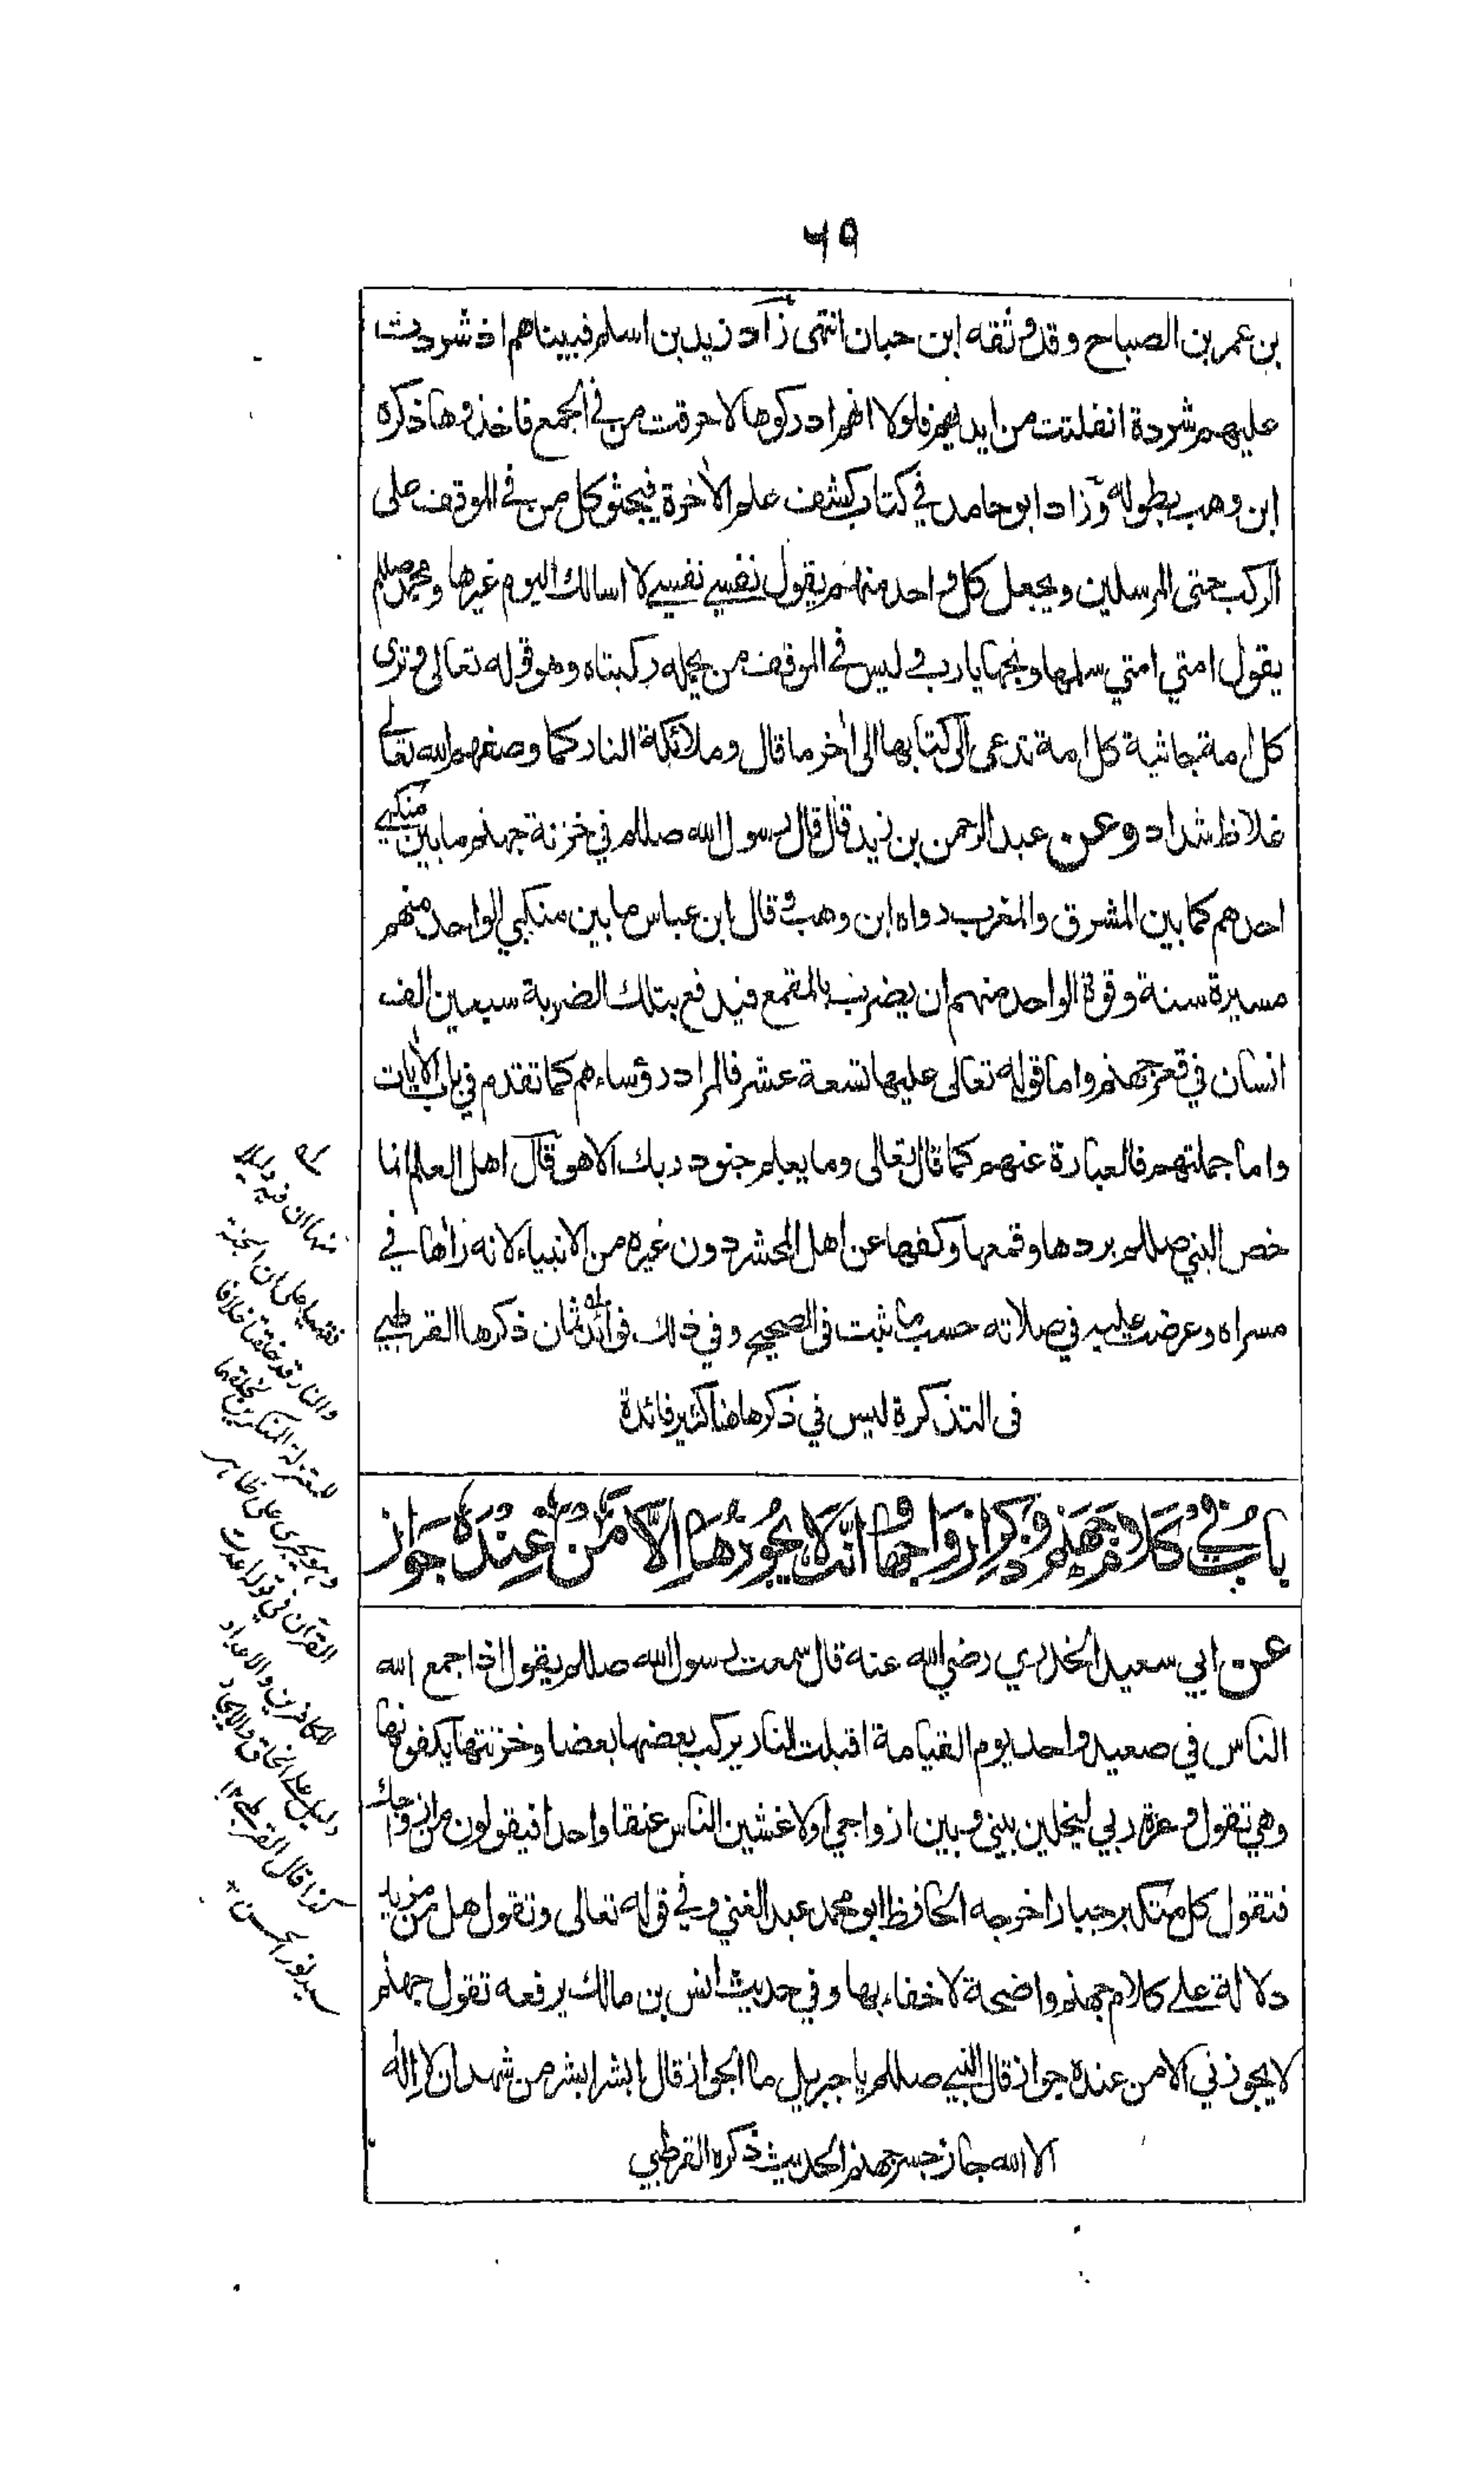 ٦٩
بن عمر بن الصباح وقد وثقه ابن حبان انتهى زاد زيد بن اسلم فبيناهم اذ شردت
عليهم شردة انفلتت من ايديهم فلولا انهم ادركوها لاحرقت من في الجمع فاخذوها ذكره
ابن وهب بطوله وزاد ابو حامد في كتاب كشف علم الاخرة فيجثو كل من في الموقف على
الركب حتى المرسلين ويجعل كل واحد منهم يقول نفسي نفسي لا اسالك اليوم غيرها ومحمد صللم
يقول امتي امتي سلمها ونجها يارب وليس في الموقف من يحمله ركبتاه وهو قوله تعالى وترى
كل امة جاثية كل امة تدعى الى كتابها الى اخر ما قال وملائكة النار كما وصفهم الله تعالى
غلاظ شداد وعن عبد الرحمن بن زيد قال قال رسول الله صللم في خزنة جهنم ما بين منكبي
احدهم كما بين المشرق والمغرب رواه ابن وهب وقال ابن عباس ما بين منكبي الواحد منهم
مسيرة سنة وقوة الواحد منهم ان يضرب بالمقمع فيدفع بتلك الضربة سبعين الف
انسان في قعر جهنم واما قوله تعالى عليها تسعة عشر فالمراد رؤساءهم كما تقدم في باب الآيات
واما جملتهم فالعبارة عنهم كما قال تعالى وما يعلم جنود ربك الا هو قال اهل العلم انما
خص النبي صللم بردها وقمعها وكفها عن اهل المحشر دون غيره من الانبياء لانه راها في
مسراه وعرضت عليه في صلاته حسب ما ثبت فى الصحيح وفي ذلك فوائد ثمان ذكرها القرطبي
فى التذكرة ليس في ذكرها هنا كثير فائدة
بابٌ في كلام جهنم وذكر ازواجها وانه لا يجوزها الّا من عنده جواز
عن ابي سعيد الخدري رضي الله عنه قال سمعت رسول الله صللم يقول اذا جمع الله
الناس في صعيد واحد يوم القيامة اقبلت النار يركب بعضها بعضا وخزنتها يكفونها
وهي تقول وعزة ربي ليخلين بيني وبين ازواجي اولاغشين الناس عنقا واحدا فيقولون من ازواجك
فتقول كل متكبر جبار اخرجه الحافظ ابو محمد عبد الغني وفي قوله تعالى وتقول هل من مزيد
دلالة على كلام جهنم واضحة لا خفاء بها وفي حديث انس بن مالك يرفعه تقول جهنم
لا يجوزني الا من عنده جواز قال النبي صللم يا جبريل ما الجواز قال ابشر ابشر من شهد ان لا اله
الا الله جاز جسر جهنم الحديث ذكره القرطبي
منها ان فيه دليلا
على ان الجنة
والنار قد خلقتا خلافا
للمعتزلة المنكرين لخلقهما
وهو يجري على ظاهر
القرآن في قوله اعدت
للكافرين والاعداد
دليل على الخلق والايجاد
كذا قال القرطبي ١٢
سيد نور الحسن